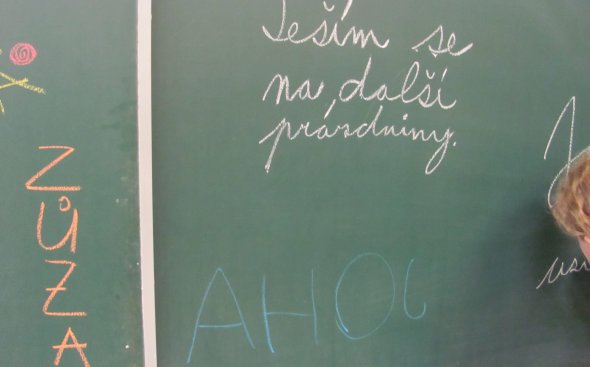 Těším se
na další
prázdniny.
ZŮZA
AHO